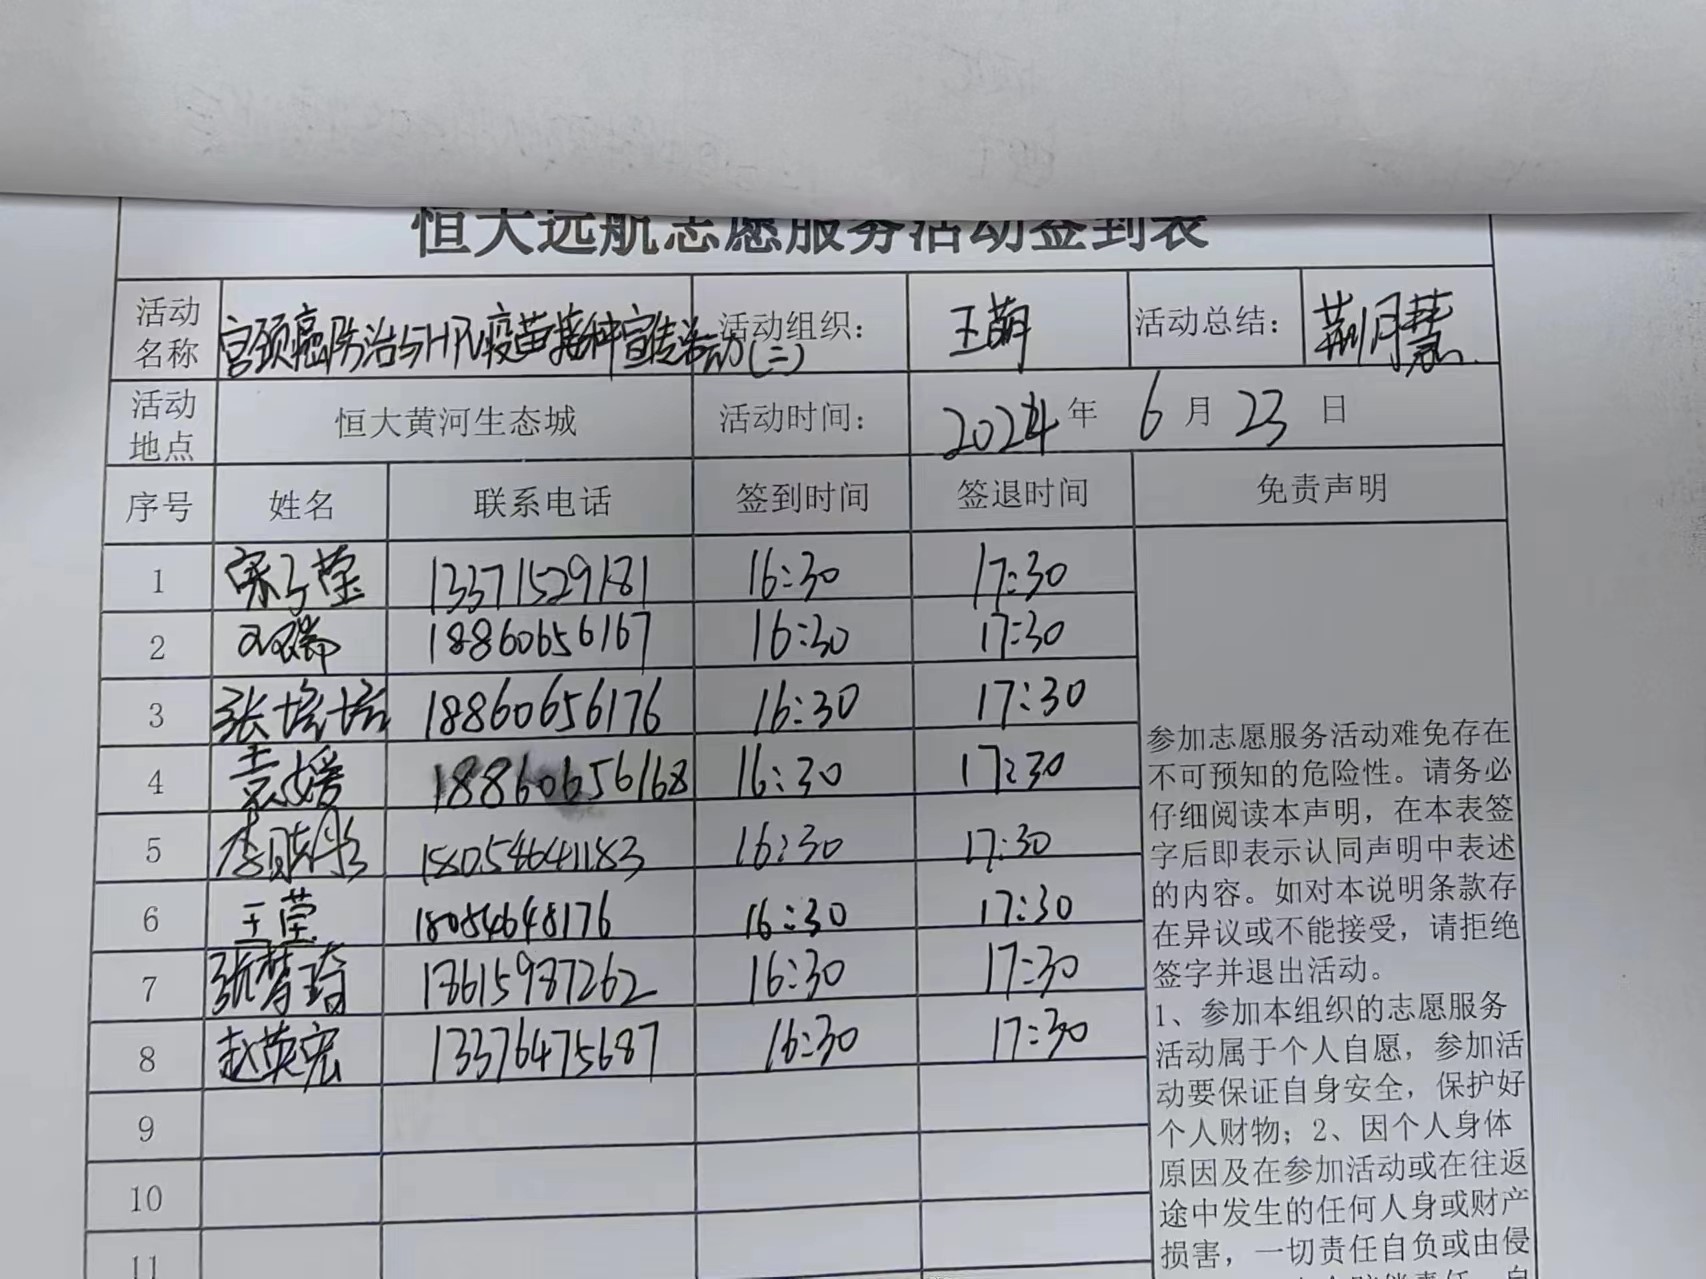 恒大远航志愿服务活动签到表
活动名称 宫颈癌防治与HPV疫苗接种宣传活动(二) 活动组织: 王萌 活动总结: 荆月慧
活动地点 恒大黄河生态城 活动时间: 2024年 6月23日
序号 姓名 联系电话 签到时间 签退时间 免责声明
1 宋子莹 13371529181 16:30 17:30
2 18860656167 16:30 17:30
3 张培培 18860656176 16:30 17:30
4 袁媛 18860656168 16:30 17:30
5 16:30 17:30
6 王莹 18054648176 16:30 17:30
7 张梦琦 18615987262 16:30 17:30
8 赵英宏 13376475687 16:30 17:30
9
10
11
参加志愿服务活动难免存在
不可预知的危险性。请务必
仔细阅读本声明，在本表签
字后即表示认同声明中表述
的内容。如对本说明条款存
在异议或不能接受，请拒绝
签字并退出活动。
1、参加本组织的志愿服务
活动属于个人自愿，参加活
动要保证自身安全，保护好
个人财物；2、因个人身体
原因及在参加活动或在往返
途中发生的任何人身或财产
损害，一切责任自负或由侵